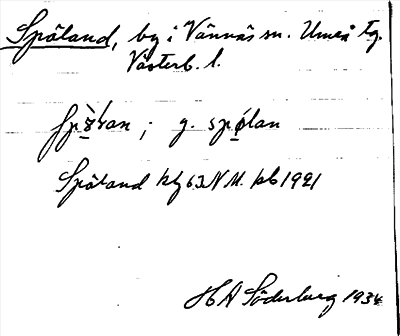 Spöland, by i Vännäs sn. Umeå tg.
Västerb. l.
g. spølan
Spöland kbl 63 N V. kb 1921
H A Söderberg 1934